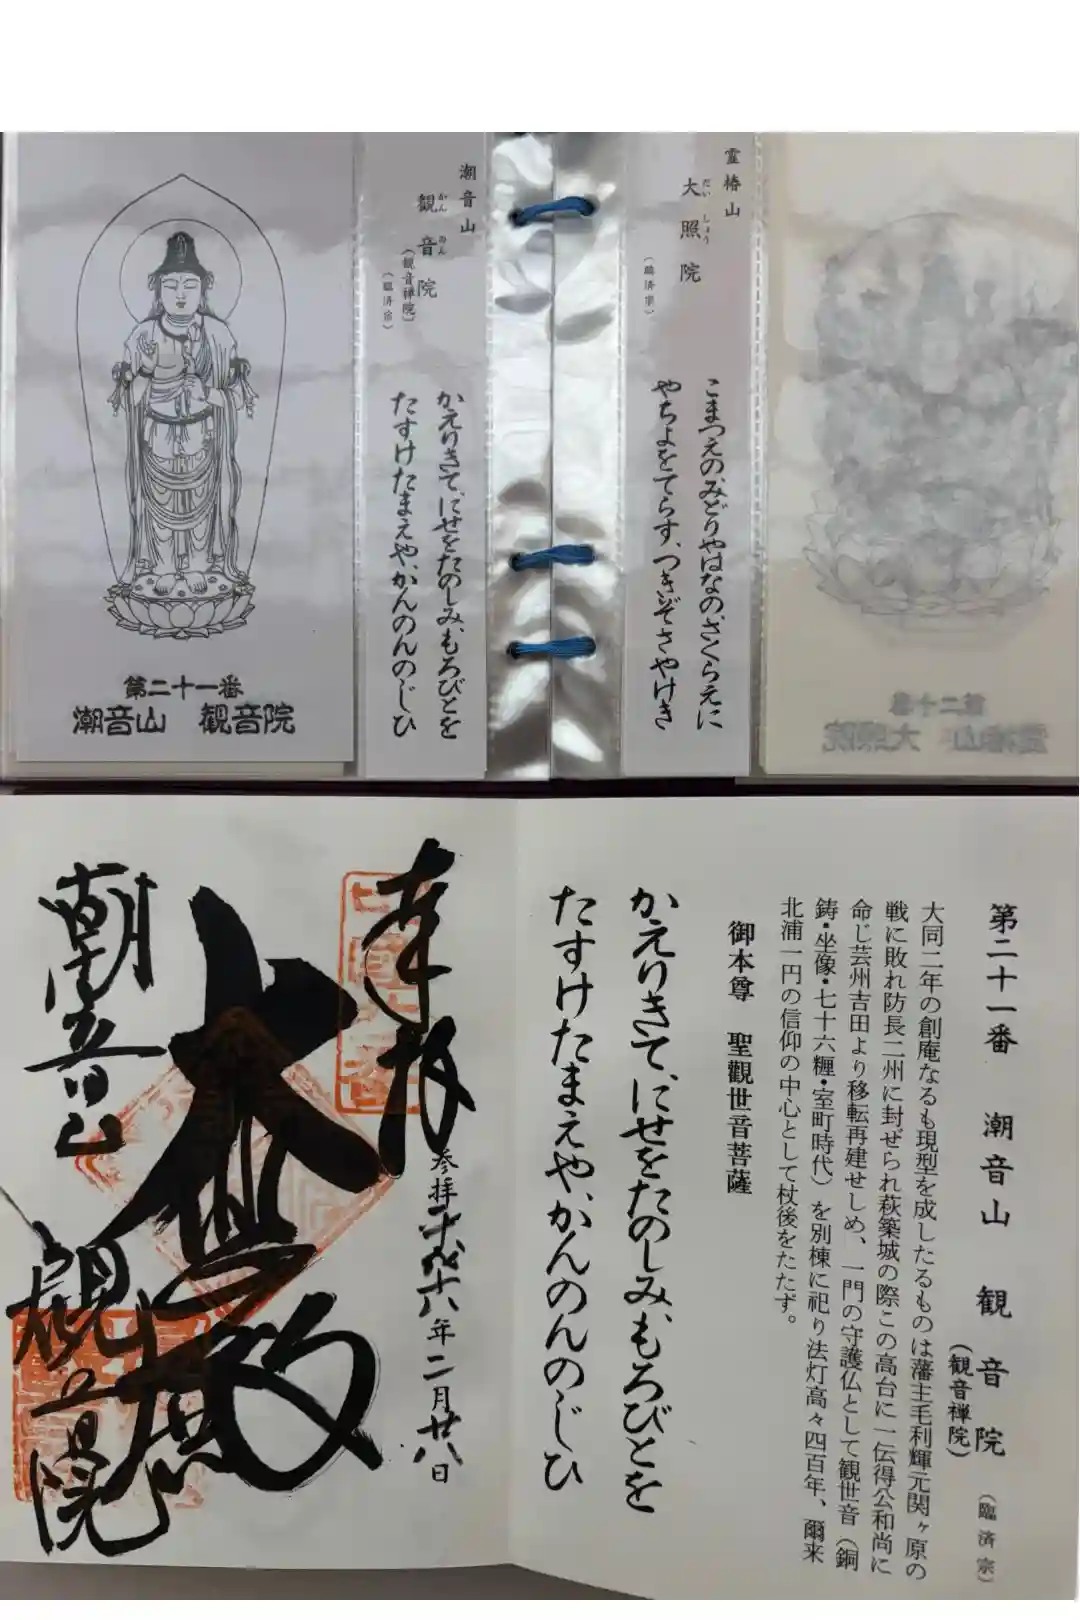 霊椿山
大照院
だいしょう
(臨済宗)
こまつえの、みどりやはなの、さくらえに
やちよをてらす、つきぞさやけき
潮音山
観音院
かんのん
(観音禅院)
(臨済宗)
かえりきて、にせをたのしみ、もろびとを
たすけたまえや、かんのんのじひ
第二十一番
潮音山 観音院
第二十番
霊椿山 大照院
第二十一番 潮音山 観音院 (臨済宗)
(観音禅院)
大同二年の創庵なるも現型を成したるものは藩主毛利輝元関ヶ原の
戦に敗れ防長二州に封ぜられ萩築城の際この高台に一伝得公和尚に
命じ芸州吉田より移転再建せしめ、一門の守護仏として観世音(銅
鋳・坐像・七十六糎・室町時代)を別棟に祀り法灯高々四百年、爾来
北浦一円の信仰の中心として杖後をたたず。
御本尊 聖觀世音菩薩
かえりきて、にせをたのしみ、もろびとを
たすけたまえや、かんのんのじひ
奉拝
参拝
十六年二月廿八日
大悲殿
潮音山
観音院